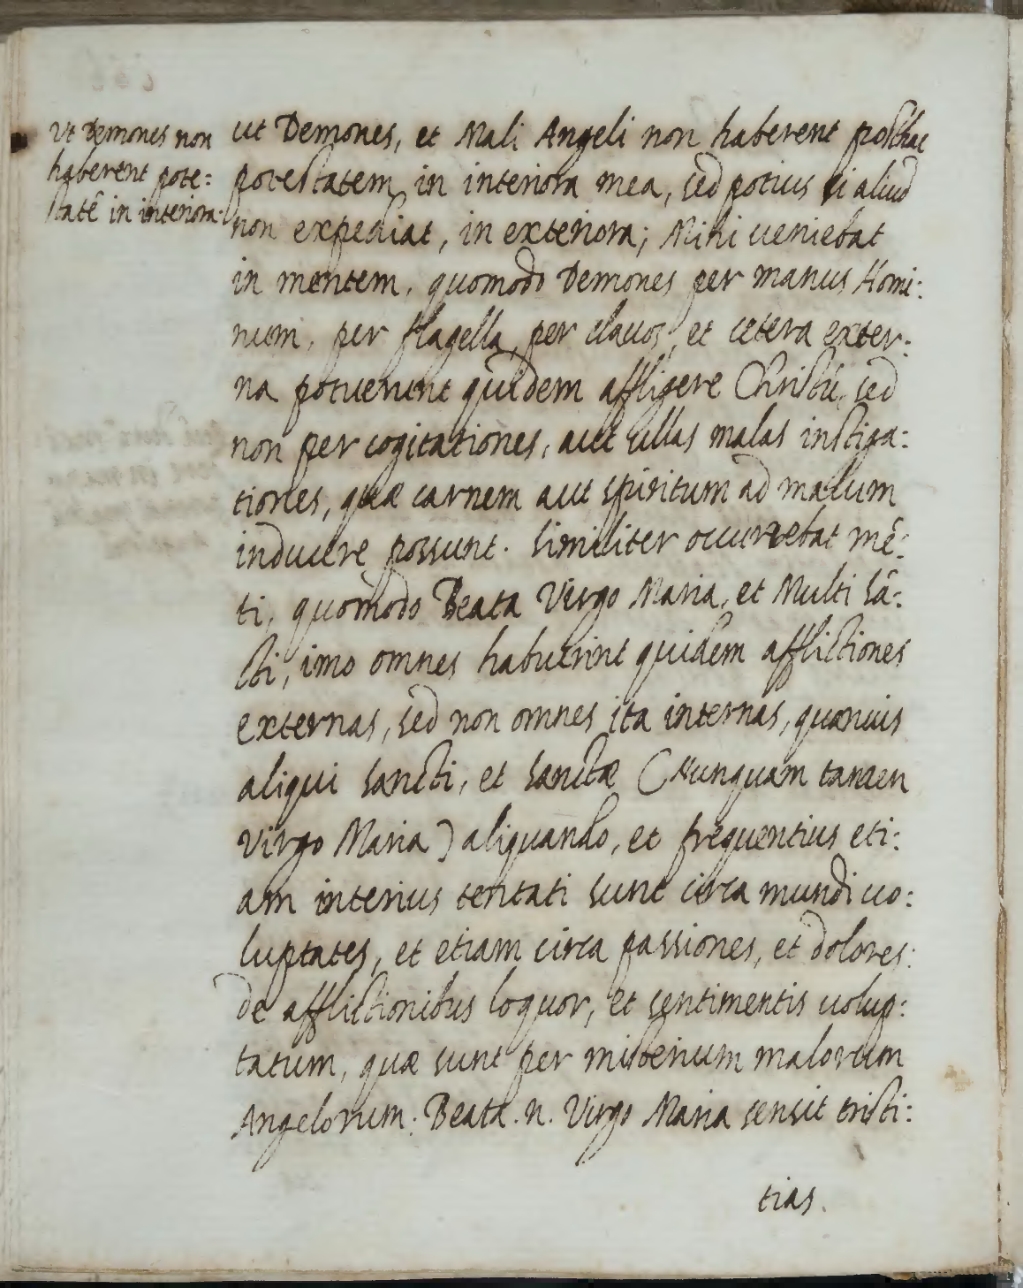 Ut Demones non
haberent pote:
statē in interiora.
ut Demones, et Mali Angeli non haberent posthac
potestatem in interiora mea, sed potius si aliud
non expediat, in exteriora; Mihi ueniebat
in mentem, quomodo Demones per manus Homi:
num, per flagella, per clauos, et cetera exter:
na potuerint quidem affligere Christū, sed
non per cogitationes, aut ullas malas instiga:
tiones, quæ carnem aut spiritum ad malum
inducere possunt. Similiter occurrebat mē:
ti, quomodo Beata Virgo Maria, et Multi Sā:
cti, imo omnes habuerint quidem afflictiones
externas, sed non omnes ita internas, quamuis
aliqui Sancti, et Sanctæ (Nunquam tamen
Virgo Maria) aliquando, et frequentius eti:
am interius tentati sunt circa mundi uo:
luptates, et etiam circa passiones, et dolores:
de afflictionibus loquor, et sentimentis uolup:
tatum, quæ sunt per misterium malorum
Angelorum. Beata .n. Virgo Maria sensit tristi:
tias.